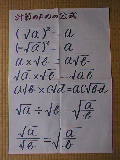 計算のための公式
(√a)² = a
(-√a)² = a
a × √b = a√b
√a × √b = √ab
a√b × c√d = ac√bd
√a ÷ √b = √a/b
√a/√b = √a/b